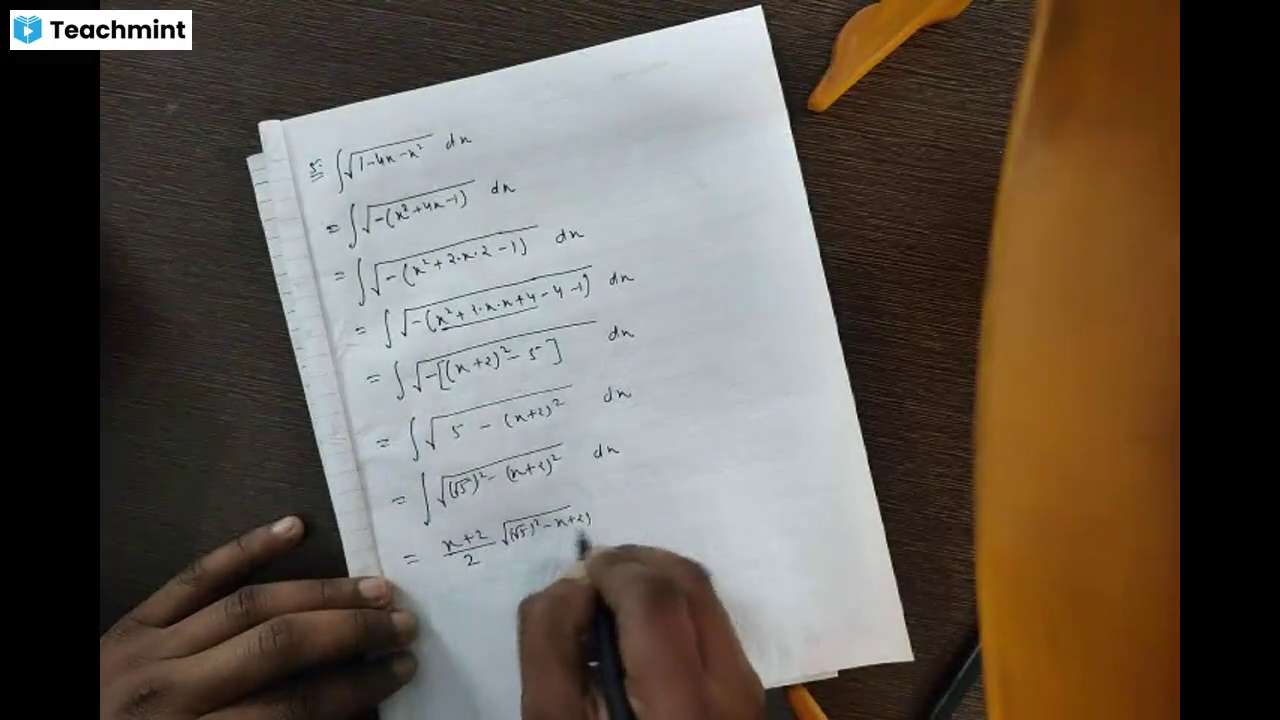 Teachmint
5. ∫√1-4x-x² dx
= ∫√-(x²+4x-1) dx
= ∫√-(x²+2·x·2-1) dx
= ∫√-(x²+2·x·x+4-4-1) dx
= ∫√-[(x+2)²-5] dx
= ∫√5-(x+2)² dx
= ∫√(√5)²-(x+2)² dx
= x+2/2 √(√5)²-x+2)